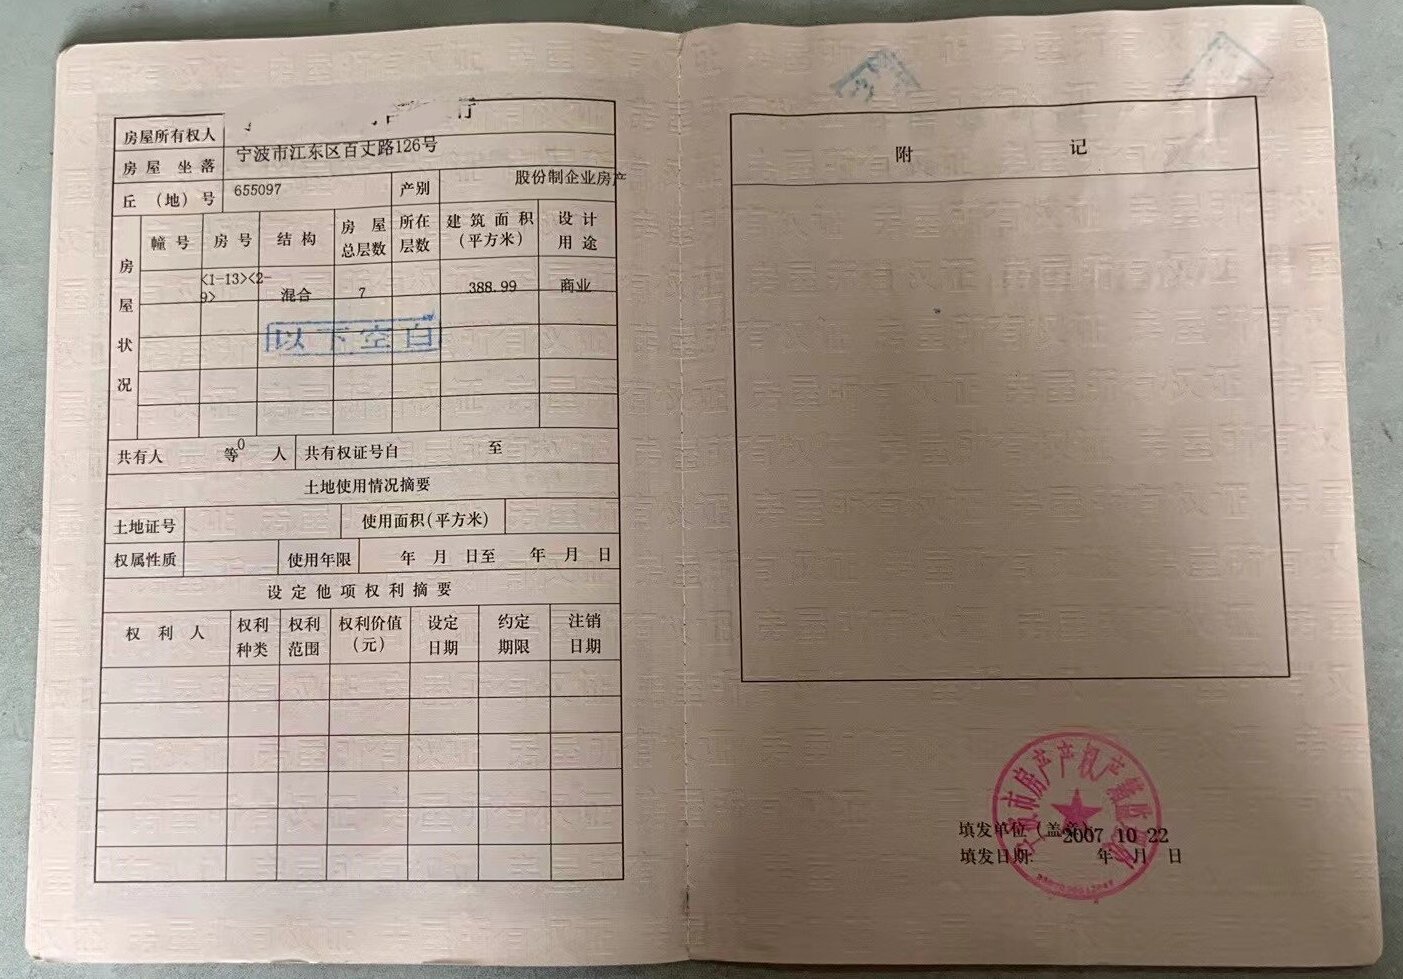 房屋所有权人
房屋坐落 宁波市江东区百丈路126号
丘（地）号 655097 产别 股份制企业房产
房屋状况 幢号 房号 结构 房屋总层数 所在层数 建筑面积（平方米） 设计用途
<1-13><2-9> 混合 7 388.99 商业
以下空白
共有人 等0人 共有权证号自 至
土地使用情况摘要
土地证号 使用面积(平方米)
权属性质 使用年限 年 月 日至 年 月 日
设定他项权利摘要
权利人 权利种类 权利范围 权利价值（元） 设定日期 约定期限 注销日期
附 记
填发单位（盖章）
2007 10 22
填发日期: 年 月 日